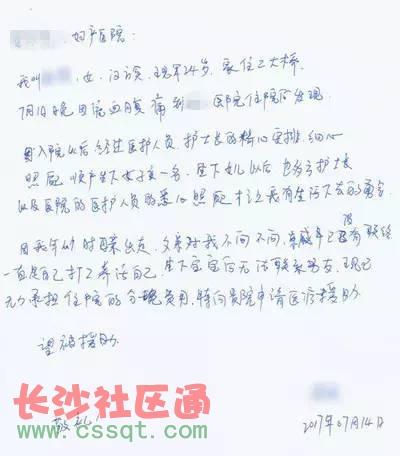 妇产医院:
我叫 ,女,汉族,现年24岁,家住三大桥,
7月1日晚因流血腹痛到 医院住院后发现
自入院以后经过医护人员,护士长的精心安排,细心
照顾 顺产生下女孩一名,生下女儿以后 也多亏护士长
以及医院的医护人员的悉心照顾 才让我有生活下去的勇气
因我年幼时 出走,父亲对我不问不问, 没有联络
一直是自己打工养活自己,生下宝宝后无法联系男友,现已
无力承担住院的分娩费用,特向贵院申请医疗援助
望被援助
敬礼
2017年07月14日
长沙社区通
www.cssqt.com